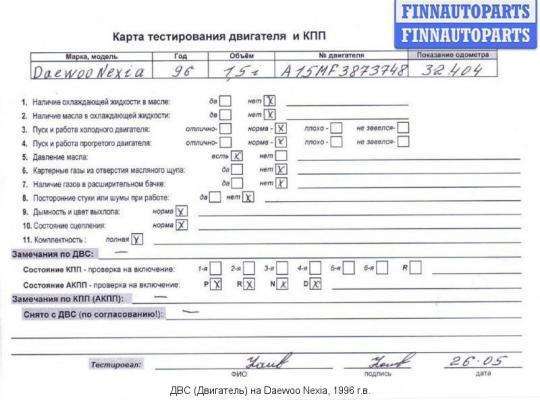 FINNAUTOPARTS
FINNAUTOPARTS
Карта тестирования двигателя и КПП
Марка, модель Год Объём № двигателя Показание одометра
Daewoo Nexia 96 1,5 A15MF3873748 32404
1. Наличие охлаждающей жидкости в масле: да нет X
2. Наличие масла в охлаждающей жидкости: да нет X
3. Пуск и работа холодного двигателя: отлично- норма - X плохо - не завелся-
4. Пуск и работа прогретого двигателя: отлично- норма - X плохо - не завелся-
5. Давление масла: есть X нет
6. Картерные газы из отверстия масляного щупа: да нет X
7. Наличие газов в расширительном бачке: да нет X
8. Посторонние стуки или шумы при работе: да нет X
9. Дымность и цвет выхлопа: норма X
10. Состояние сцепления: норма X
11. Комплектность : полная X
Замечания по ДВС: —
Состояние КПП - проверка на включение: 1-я 2-я 3-я 4-я 5-я 6-я R
Состояние АКПП - проверка на включение: P X R X N X D X
Замечания по КПП (АКПП): —
Снято с ДВС (по согласованию!): —
Тестировал: 26.05
ФИО подпись дата
ДВС (Двигатель) на Daewoo Nexia, 1996 г.в.